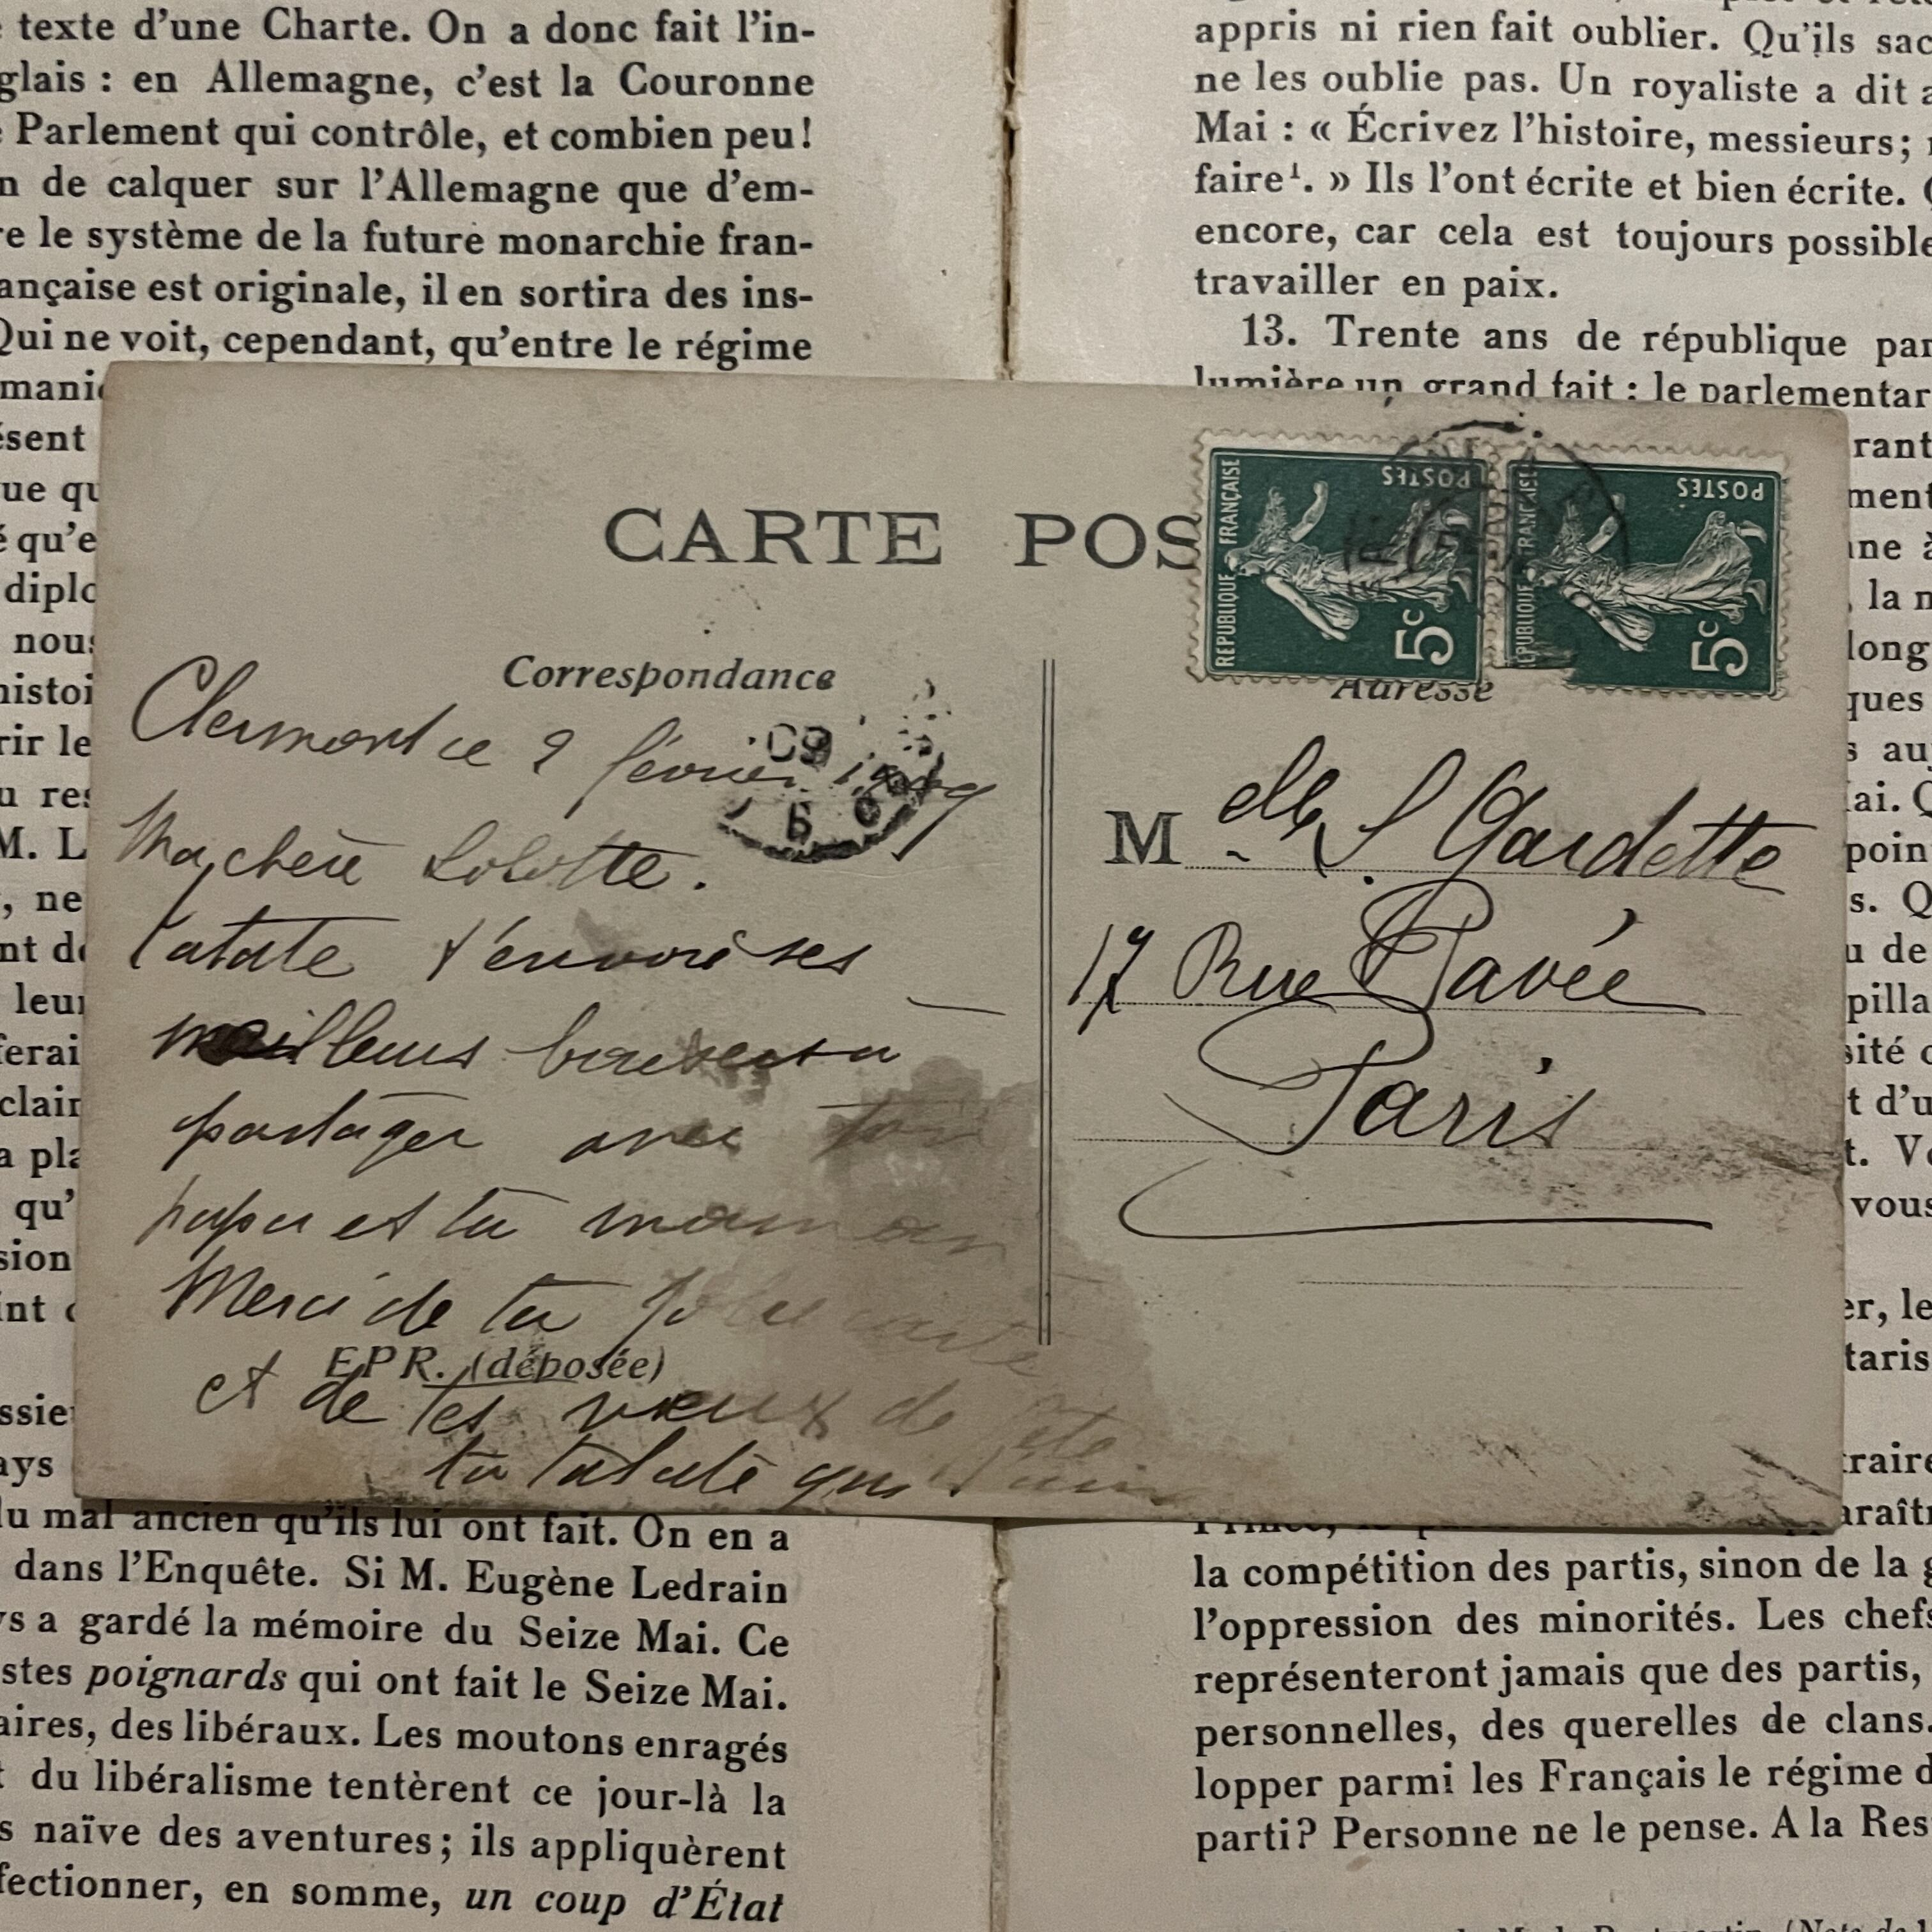 texte d'une Charte. On a donc fait l'in-
glais : en Allemagne, c'est la Couronne
Parlement qui contrôle, et combien peu!
n de calquer sur l'Allemagne que d'em-
re le système de la future monarchie fran-
ançaise est originale, il en sortira des ins-
Qui ne voit, cependant, qu'entre le régime
manie
ésent
ue qu
é qu'e
diplo
nous
histoi
rir le
u res
M. L
, ne
nt de
leur
ferai
clair
a pla
qu'
sion
int
ssie
ays
du mal ancien qu'ils lui ont fait. On en a
dans l'Enquête. Si M. Eugène Ledrain
ys a gardé la mémoire du Seize Mai. Ce
stes poignards qui ont fait le Seize Mai.
aires, des libéraux. Les moutons enragés
t du libéralisme tentèrent ce jour-là la
s naïve des aventures; ils appliquèrent
fectionner, en somme, un coup d'État
appris ni rien fait oublier. Qu'ils sac
ne les oublie pas. Un royaliste a dit a
Mai : « Écrivez l'histoire, messieurs;
faire¹. » Ils l'ont écrite et bien écrite.
encore, car cela est toujours possible
travailler en paix.
13. Trente ans de république par
lumière un grand fait : le parlementar
rant
ment
ne à
la n
long
ques
s au
ai.
point
s. Q
u de
pilla
sité
t d'u
t. V
vous
er, le
taris
raire
araîtr
la compétition des partis, sinon de la g
l'oppression des minorités. Les chefs
représenteront jamais que des partis,
personnelles, des querelles de clans.
lopper parmi les Français le régime d
parti? Personne ne le pense. A la Res
CARTE POS
REPUBLIQUE FRANÇAISE
POSTES
5c
REPUBLIQUE FRANÇAISE
POSTES
5c
Correspondance
Adresse
09
Clermont ce 9 février 1909
Ma chère Lolotte.
Tatate t'envoie ses
meilleurs baisers a
partager avec ton
papa et ta maman
Merci de ta jolie carte
EPR. (déposée)
et de tes vœux de fête
ta Tatate qui t'aime
Melle S Gardette
17 Rue Pavée
Paris